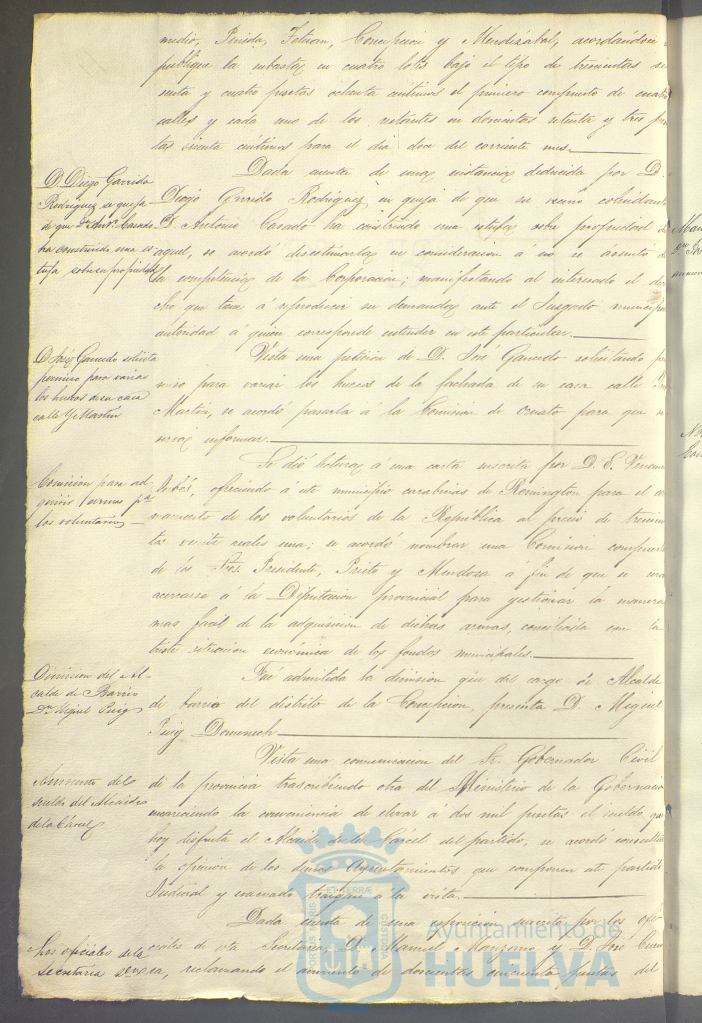 medio, Pineda, Tetuan, Concepcion y Mendizabal, acordándose
publique la subasta en cuatro lotes bajo el tipo de trescientas
y cuatro pesetas ochenta céntimos el primero compuesto de cuatro
calles y cada uno de los restantes en doscientas setenta y tres
tas céntimos para el dia doce del corriente mes.
D. Diego Garrido
Rodriguez se queja
de que Dn. Antº. Casado
ha construido una es
tufa sobre su propiedad
Dada cuenta de una instancia deducida por D.
Diego Garrido Rodriguez en queja de que su vecino colindante
D. Antonio Casado ha construido una estufa sobre propiedad de
aquel, se acordó desestimarla en consideracion á no ser asunto de
la competencia de la Corporacion; manifestando al interesado el dere
cho que tiene á reproducir su demanda ante el Juzgado municipal
autoridad á quien corresponde entender en este particular.
D. José Ganedo solicita
permiso para variar
los huecos de su casa
calle Y. Martin
Vista una peticion de D. José Ganedo solicitando per
miso para variar los huecos de la fachada de su casa calle
Martin, se acordó pasarla á la Comision de Ornato para que se
sirva informar.
Comision para ad
quirir armas pª.
los voluntarios
Se dió lectura á una carta suscrita por D. E.
ofreciendo á este municipio carabinas de Remington para el ar
mamento de los voluntarios de la República al precio de trescien
tos veinte reales una; se acordó nombrar una Comision compuesta
de los Sres. Presidente, Prieto y Mendoza á fin de que se
acercase á la Diputacion provincial para gestionar la manera
mas facil de la adquisicion de dichas armas, conciliada con la
triste situacion económica de los fondos municipales.
Dimision del Al-
calde de Barrio
Dn. Miguel Puig
Fué admitida la dimision que del cargo de Alcalde
de barrio del distrito de la Concepcion, presenta D. Miguel
Puig Domenech
Aumento del
sueldo del Alcaide
de la Cárcel
Vista una comunicacion del Sr. Gobernador Civil
de la provincia trascribiendo otra del Ministerio de la Gobernacion
encareciendo la conveniencia de elevar á dos mil pesetas el sueldo, que
hoy disfruta el Alcaide de la Cárcel del partido, se acordó consultar
la opinion de los demas Ayuntamientos que componen este partido
Judicial y evacuado traigase á la vista.
Los oficiales de la
Secretaria
Dada cuenta de una esposicion suscrita por los ofi-
ciales de esta Secretaria D. Manuel Manzano y D. José
reclamando el aumento de doscientas cincuenta pesetas del
Ayuntamiento de
HUELVA